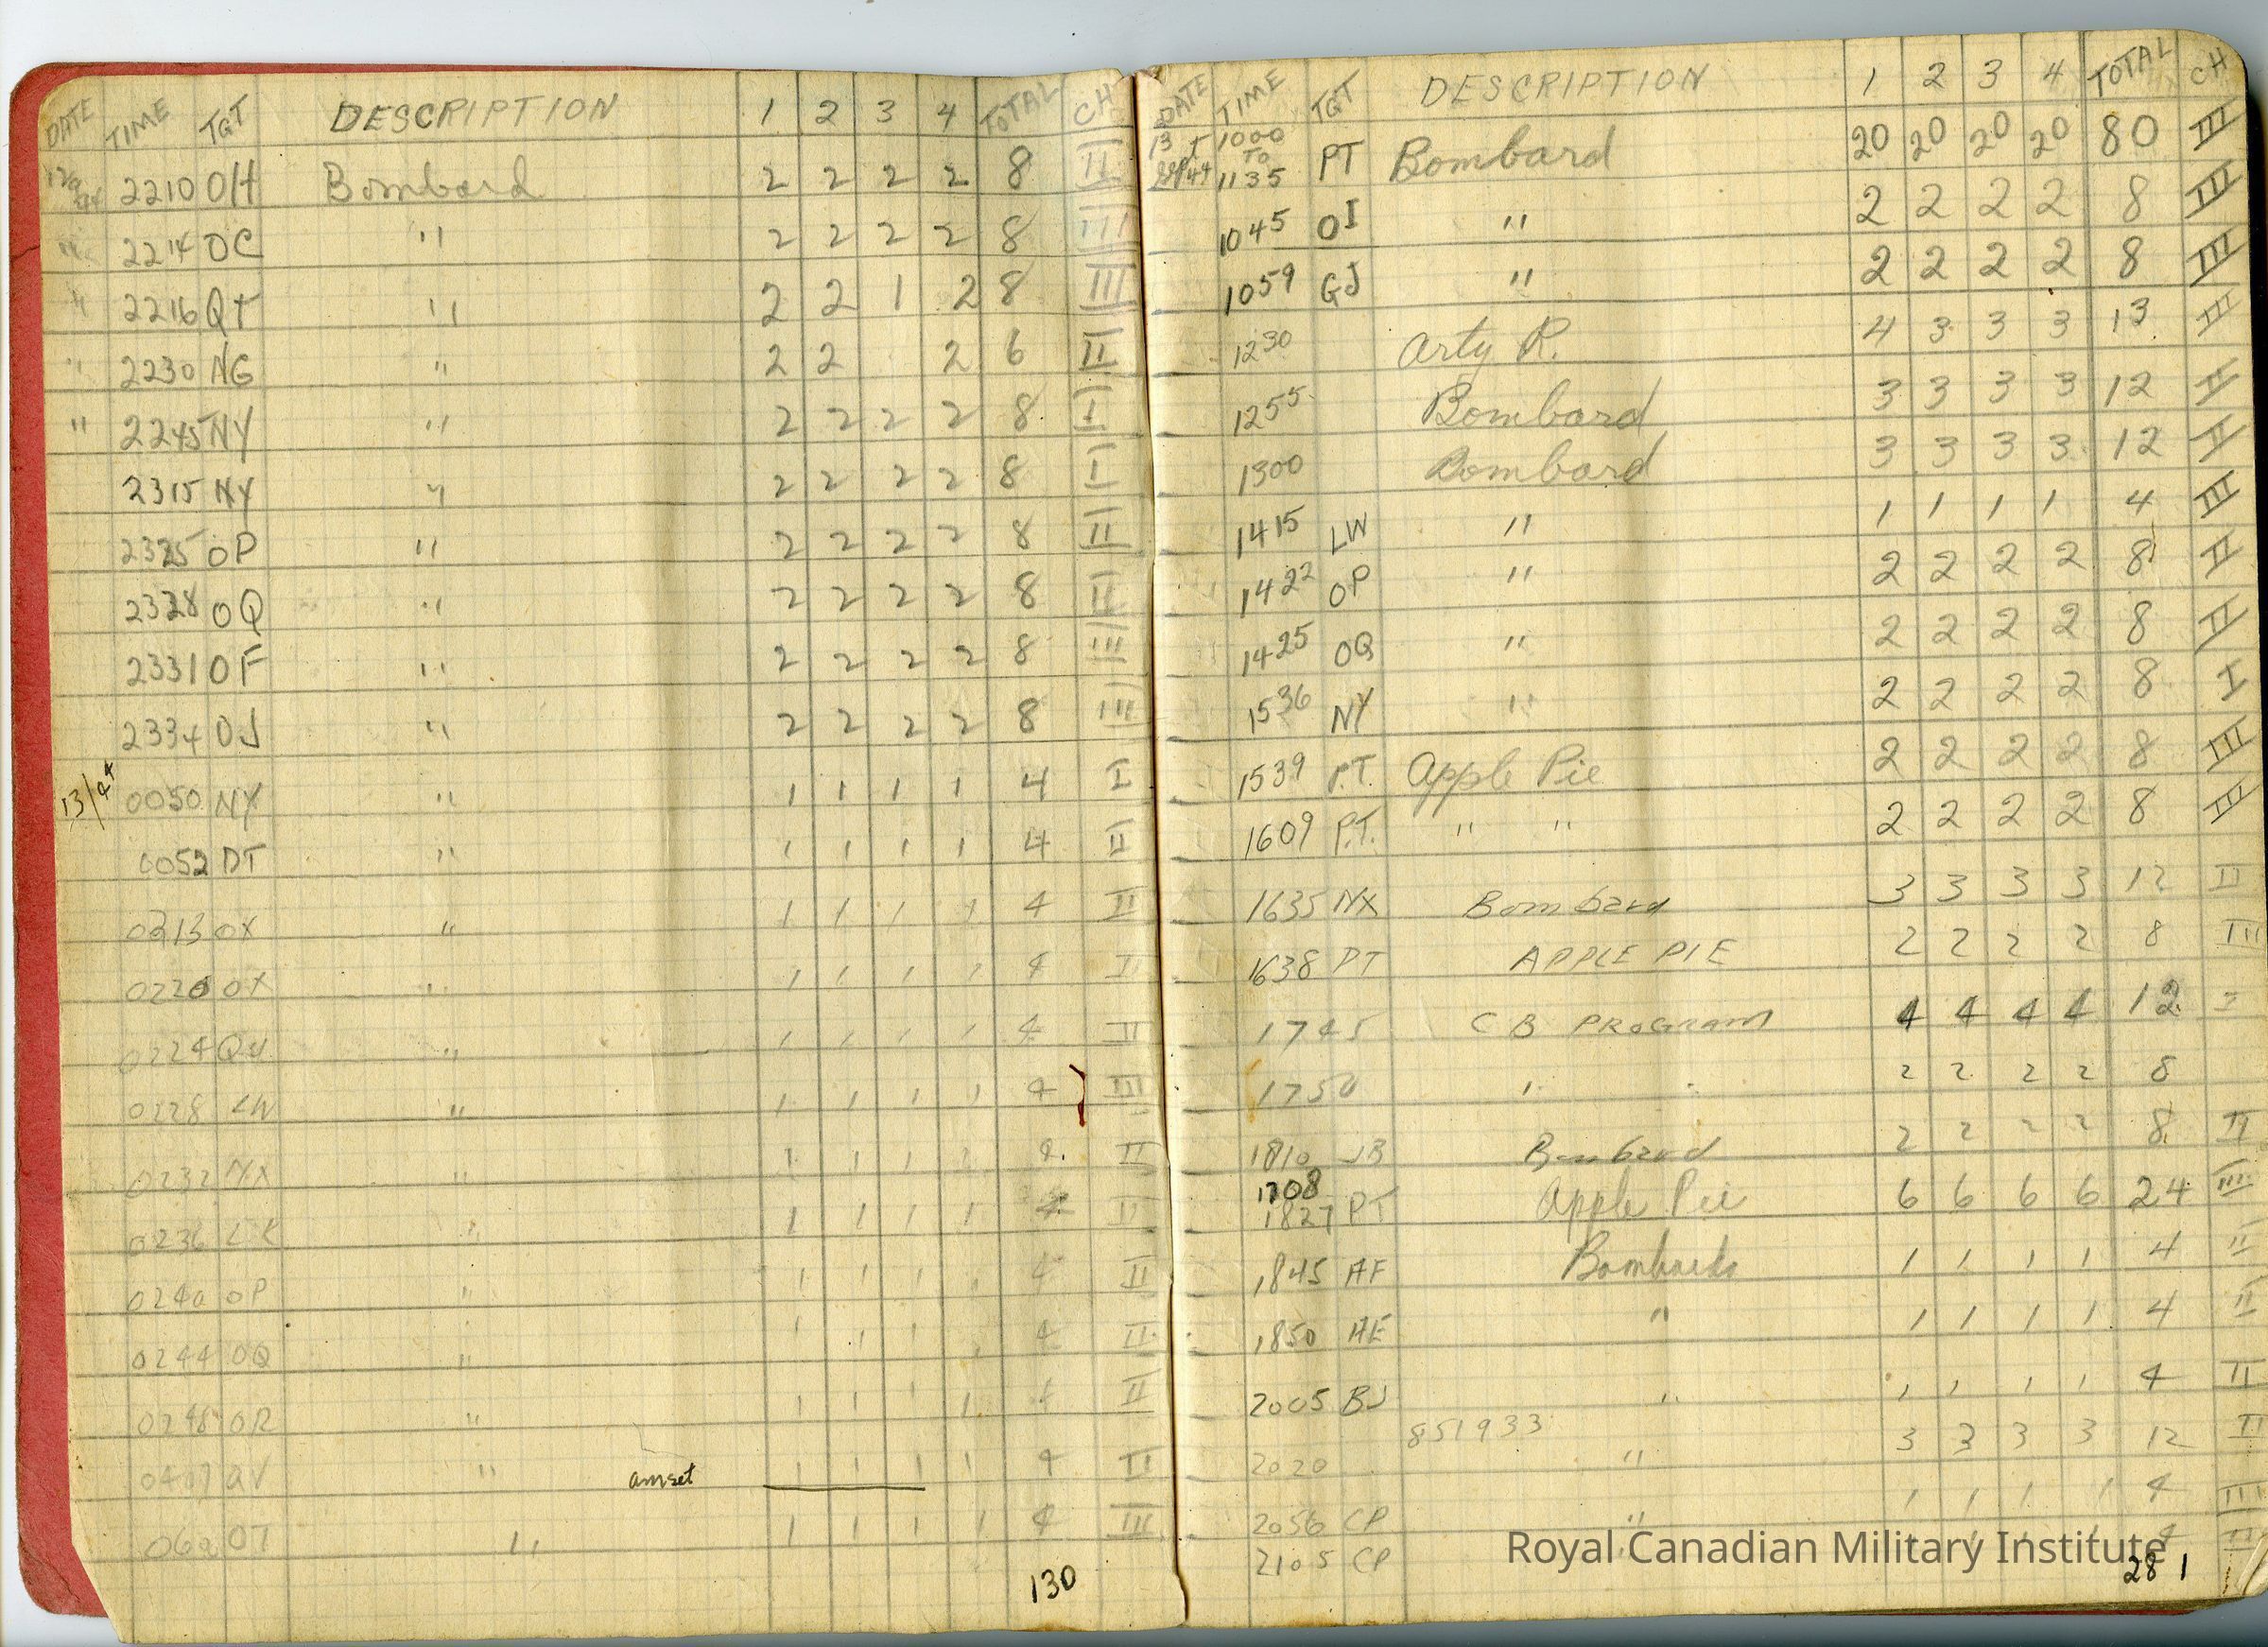 DATE TIME TGT DESCRIPTION 1 2 3 4 TOTAL CH
2210 OH Bombard 2 2 2 2 8 II
2214 OC " 2 2 2 2 8 III
" 2216 QT " 2 2 1 2 8 III
" 2230 NG " 2 2 2 6 II
" 2245 NY " 2 2 2 2 8 I
2315 NY " 2 2 2 2 8 I
2325 OP " 2 2 2 2 8 II
2328 OQ " 2 2 2 2 8 II
2331 OF " 2 2 2 2 8 III
2334 OJ " 2 2 2 2 8 III
13/ 0050 NY " 1 1 1 1 4 I
0052 DT " 1 1 1 1 4 II
0213 OX " 1 1 1 1 4 II
0220 OX " 1 1 1 1 4 II
0224 " 1 1 1 1 4 II
0228 LW " 1 1 1 1 4 III
0232 NX " 1 1 1 1 4 II
0236 LK " 1 1 1 1 4 II
0240 OP " 1 1 1 1 4 II
0244 OQ " 1 1 1 4 II
0248 OR " 1 1 1 1 4 II
QV " 1 1 1 1 4 II
OT " 1 1 1 1 4 III
130
DATE TIME TGT DESCRIPTION 1 2 3 4 TOTAL CH
13 Sept 44 1000 TO 1135 PT Bombard 20 20 20 20 80 III
1045 OI " 2 2 2 2 8 III
1059 GJ " 2 2 2 2 8 III
1230 Arty R. 4 3 3 3 13 III
1255 Bombard 3 3 3 3 12 II
1300 Bombard 3 3 3 3 12 II
1415 LW " 1 1 1 1 4 III
1422 OP " 2 2 2 2 8 II
1425 OQ " 2 2 2 2 8 II
1536 NY " 2 2 2 2 8 I
1539 P.T. Apple Pie 2 2 2 2 8 III
1609 P.T. " " 2 2 2 2 8 III
1635 NX Bombard 3 3 3 3 12 II
1638 PT APPLE PIE 2 2 2 2 8 III
1745 CB PROGRAM 4 4 4 4 12
1750 " " 2 2 2 2 8
1810 JB Bombard 2 2 2 2 8 II
1708 1827 PT Apple Pie 6 6 6 6 24 III
1845 AF Bombards 1 1 1 1 4 II
1850 AE " 1 1 1 1 4 II
2005 BJ " 1 1 1 1 4 II
2020 851933 " 3 3 3 3 12 II
2056 CP " 1 1 1 1 4 III
2105 CP " 1 1 1 4 III
281
Royal Canadian Military Institute